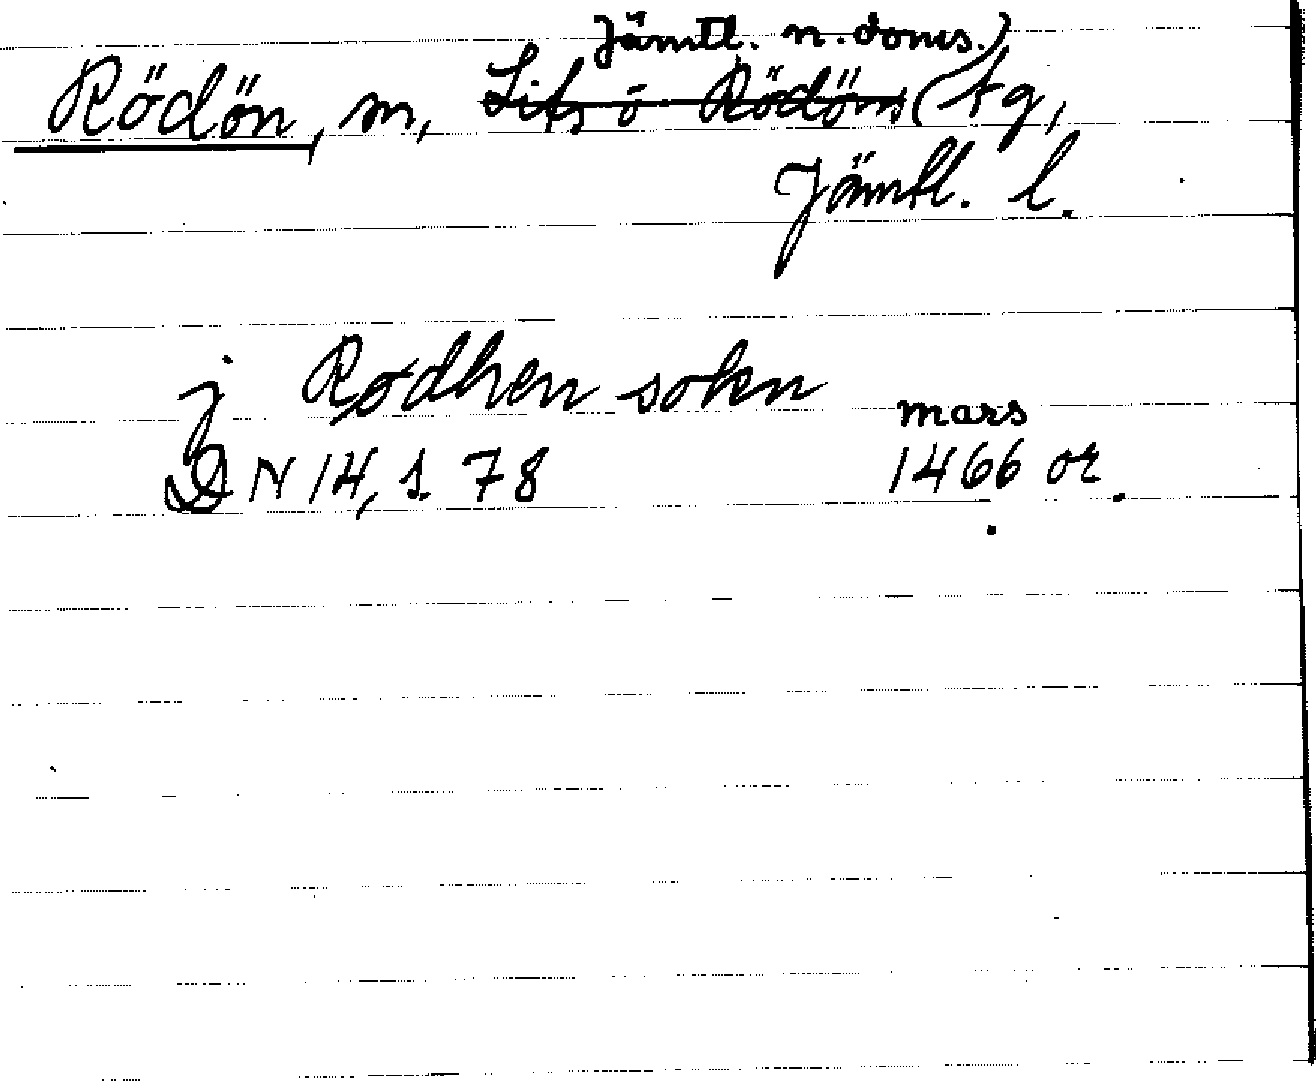 Jämtl. n. doms.)
Rödön, sn, Lits o Rödöns (tg,
Jämtl. l.
j Rødhen sokn
mars
DN 14, s. 78 1466 or.